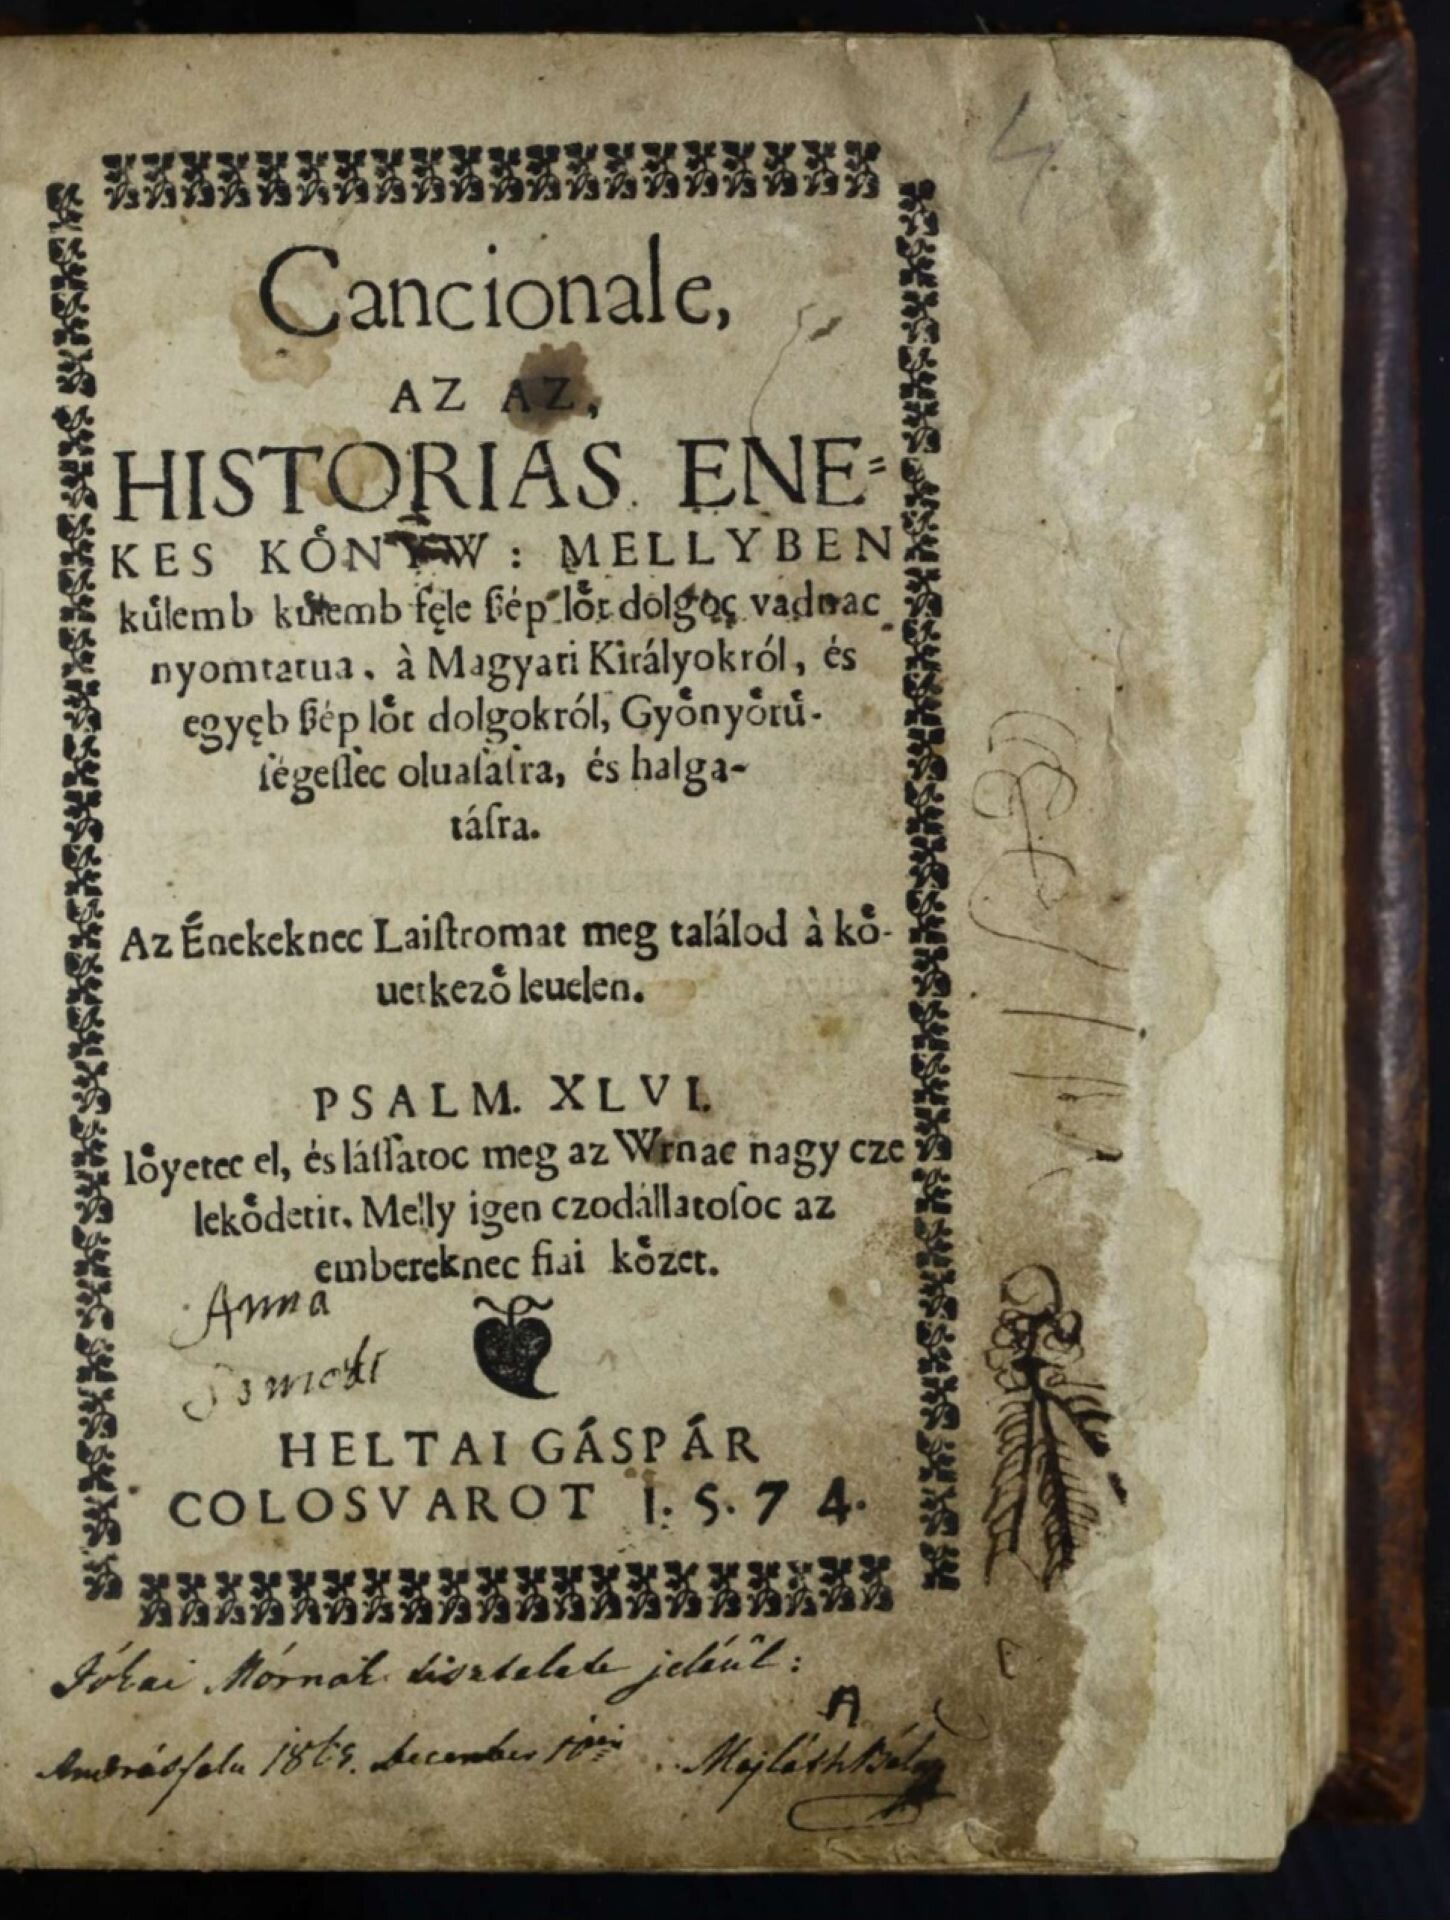 Cancionale,
AZ AZ,
HISTORIAS ENE=
KES KŐNYW : MELLYBEN
kuͤlemb kuͤlemb fęle ßép loͤt dolgoc vadnac
nyomtatua, à Magyari Királyokról, és
egyęb ßép loͤt dolgokról, Gyoͤnyoͤruͤ-
ſégeſſec oluaſaſra, és halga-
táſra.
Az Énekeknec Laiſtromat meg találod à koͤ-
uetkezoͤ leuelen.
PSALM. XLVI.
Ioͤyetec el, és láſſatoc meg az Wrnac nagy cze
lekoͤdetit. Melly igen czodállatoſoc az
embereknec fiai koͤzet.
Anna
HELTAI GÁSPÁR
COLOSVAROT 1.5.74.
Jókai Mórnak tisztelete jeléül:
Andrásfalu december Majláth Béla